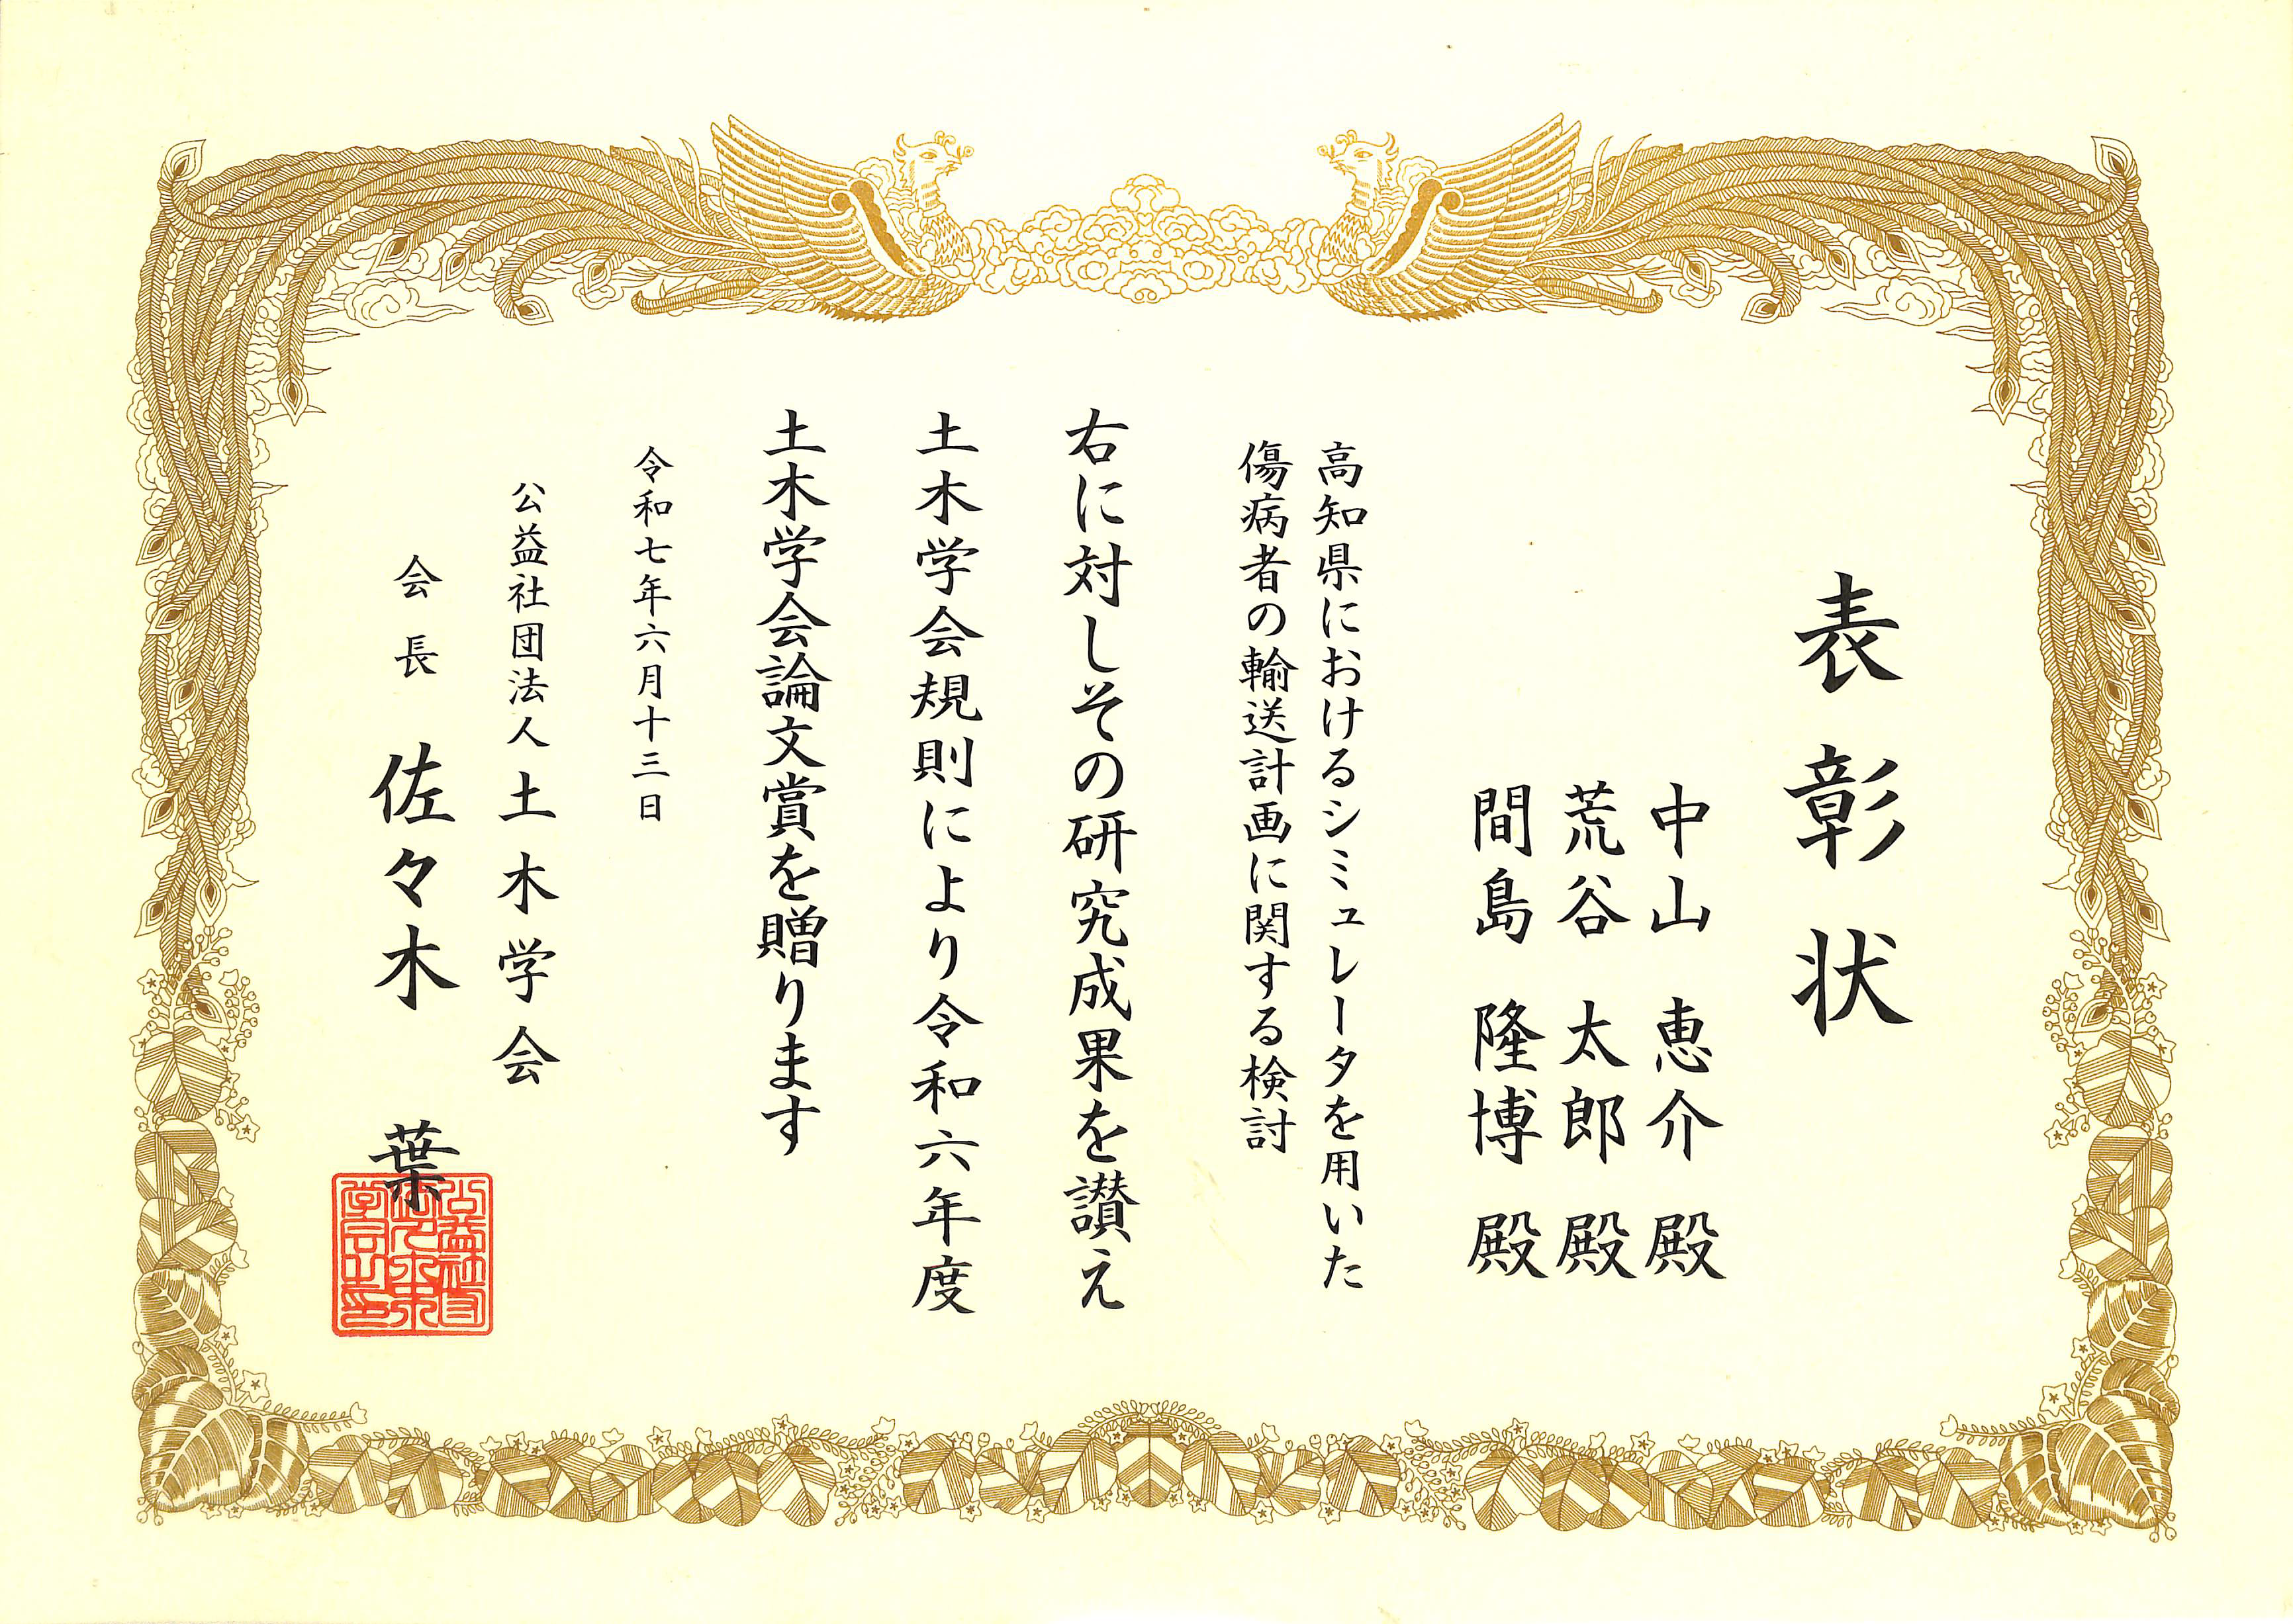 表彰状
中山 恵介 殿
荒谷 太郎 殿
間島 隆博 殿
高知県におけるシミュレータを用いた
傷病者の輸送計画に関する検討
右に対しその研究成果を讃え
土木学会規則により令和六年度
土木学会論文賞を贈ります
令和七年六月十三日
公益社団法人 土木学会
会長 佐々木 葉